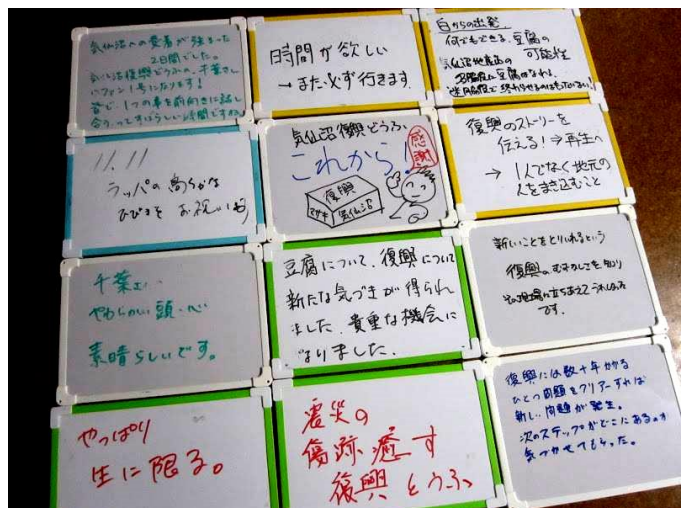 気仙沼への愛着が強まった
2日間でした。
気仙沼復興どうふの、千葉さん
ファン1号になります!
皆で、1つの事を前向きに話し
合うってすばらしい時間ですね
時間が欲しい
→また必ず行きます
白からの出発
何でもできる、豆腐の
可能性
気仙沼地産品の
豆腐になれ、
11.11
ラッパの高らかな
ひびきを お祝いに
気仙沼復興どうふ、
これから!
感謝
復興
マサキ
気仙沼
復興のストーリーを
伝える!⇒再生へ
→1人でなく地元の
人をまき込むこと
千葉さん
やわらかい頭・心
素晴らしいです。
豆腐について、復興について
新たな気づきが得られ
ました。貴重な機会に
なりました。
新しいことをとりいれるという
復興のむずかしさを知り
その現場に立ちあえてうれしかった
です。
やっぱり
生に限る。
震災の
傷跡癒す
復興とうふ
復興には数十年かかる
ひとつ問題をクリアーすれば
新しい問題が発生。
次のステップがどこにあるのか
気づかせてもらった。